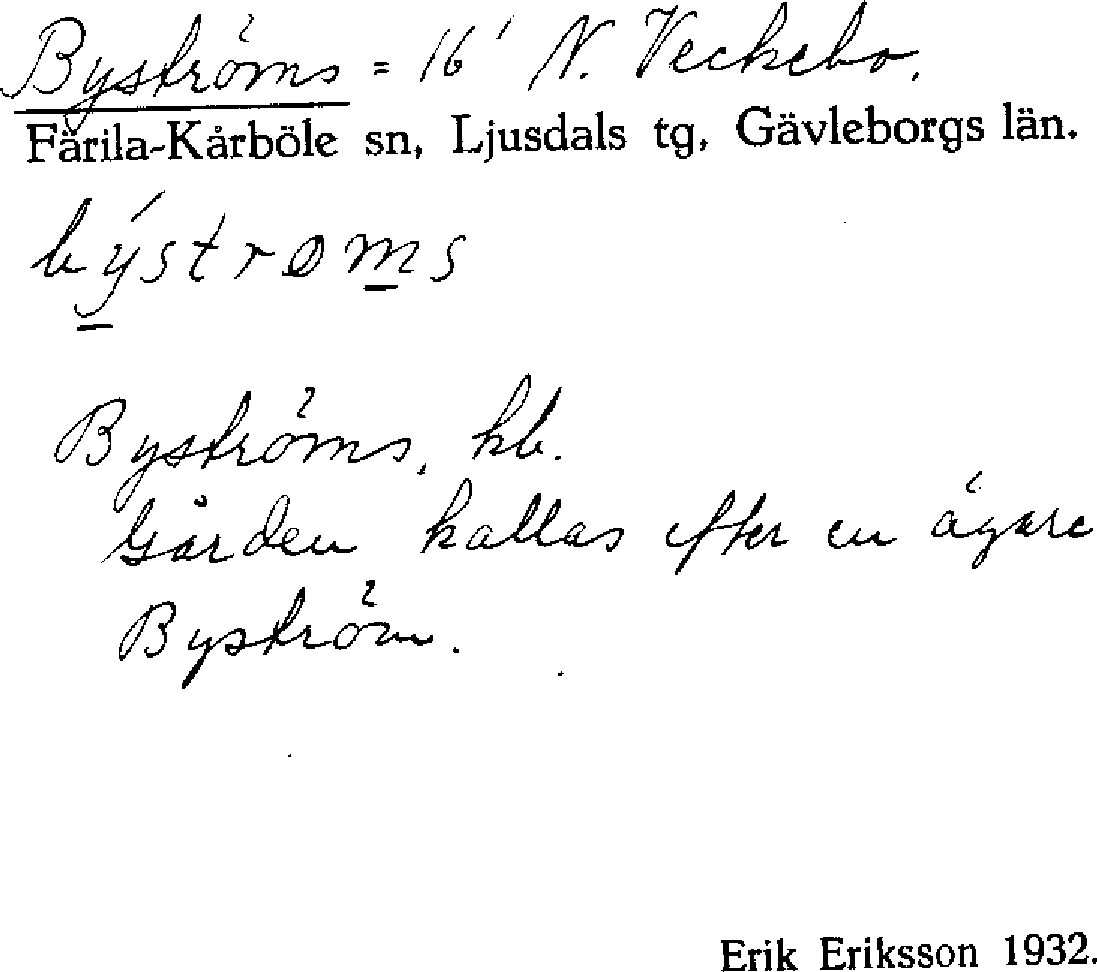 Byströms = 16¹ N. Veckebo.
Färila-Kårböle sn, Ljusdals tg, Gävleborgs län.
býstrøms
Byströms, hb.
Gården kallas efter en ägare
Byström.
Erik Eriksson 1932.